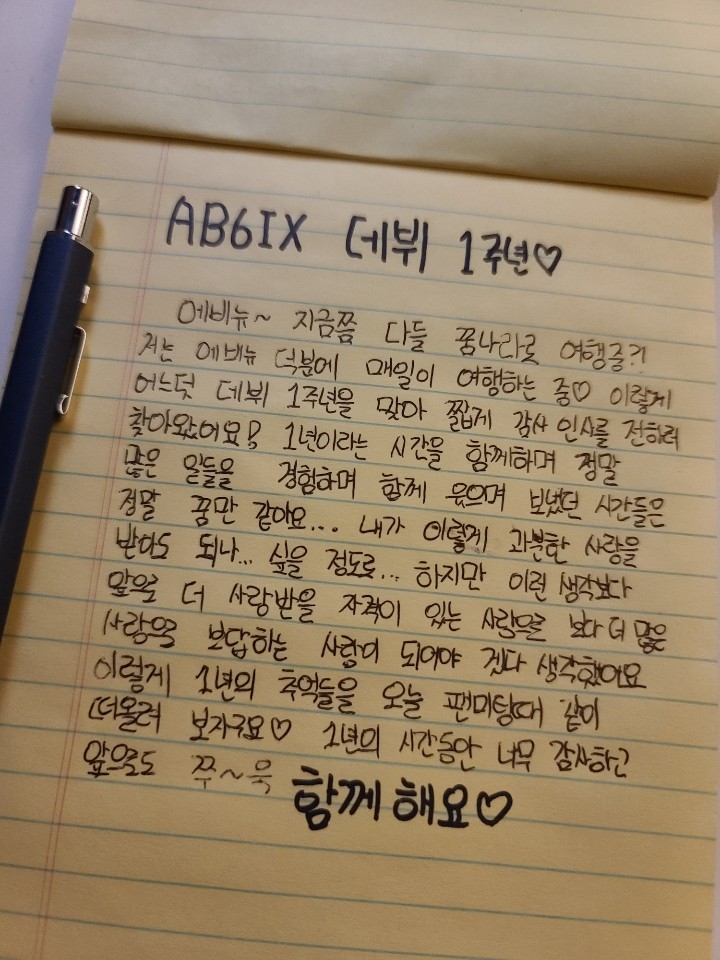 AB6IX 데뷔 1주년♡
에비뉴~ 지금쯤 다들 꿈나라로 여행중?!
저는 에비뉴 덕분에 매일이 여행하는 중♡ 이렇게
어느덧 데뷔 1주년을 맞아 짧게 감사 인사를 전하러
찾아왔어요! 1년이라는 시간을 함께하며 정말
많은 일들을 경험하며 함께 웃으며 보냈던 시간들은
정말 꿈만 같아요... 내가 이렇게 과분한 사랑을
받아도 되나... 싶을 정도로... 하지만 이런 생각보다
앞으로 더 사랑받을 자격이 있는 사람으로 보다 더 많은
사랑으로 보답하는 사람이 되어야 겠다 생각했어요
이렇게 1년의 추억들을 오늘 팬미팅때 같이
떠올려 보자구요♡ 1년의 시간동안 너무 감사하고
앞으로도 쭈~욱 함께 해요♡